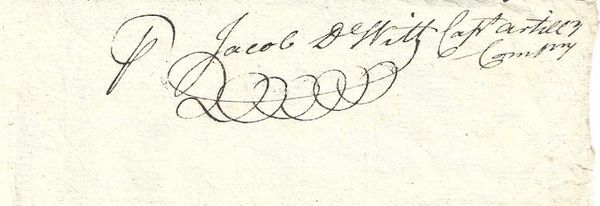 P Jacob DeWitt Capt Artillery
Company